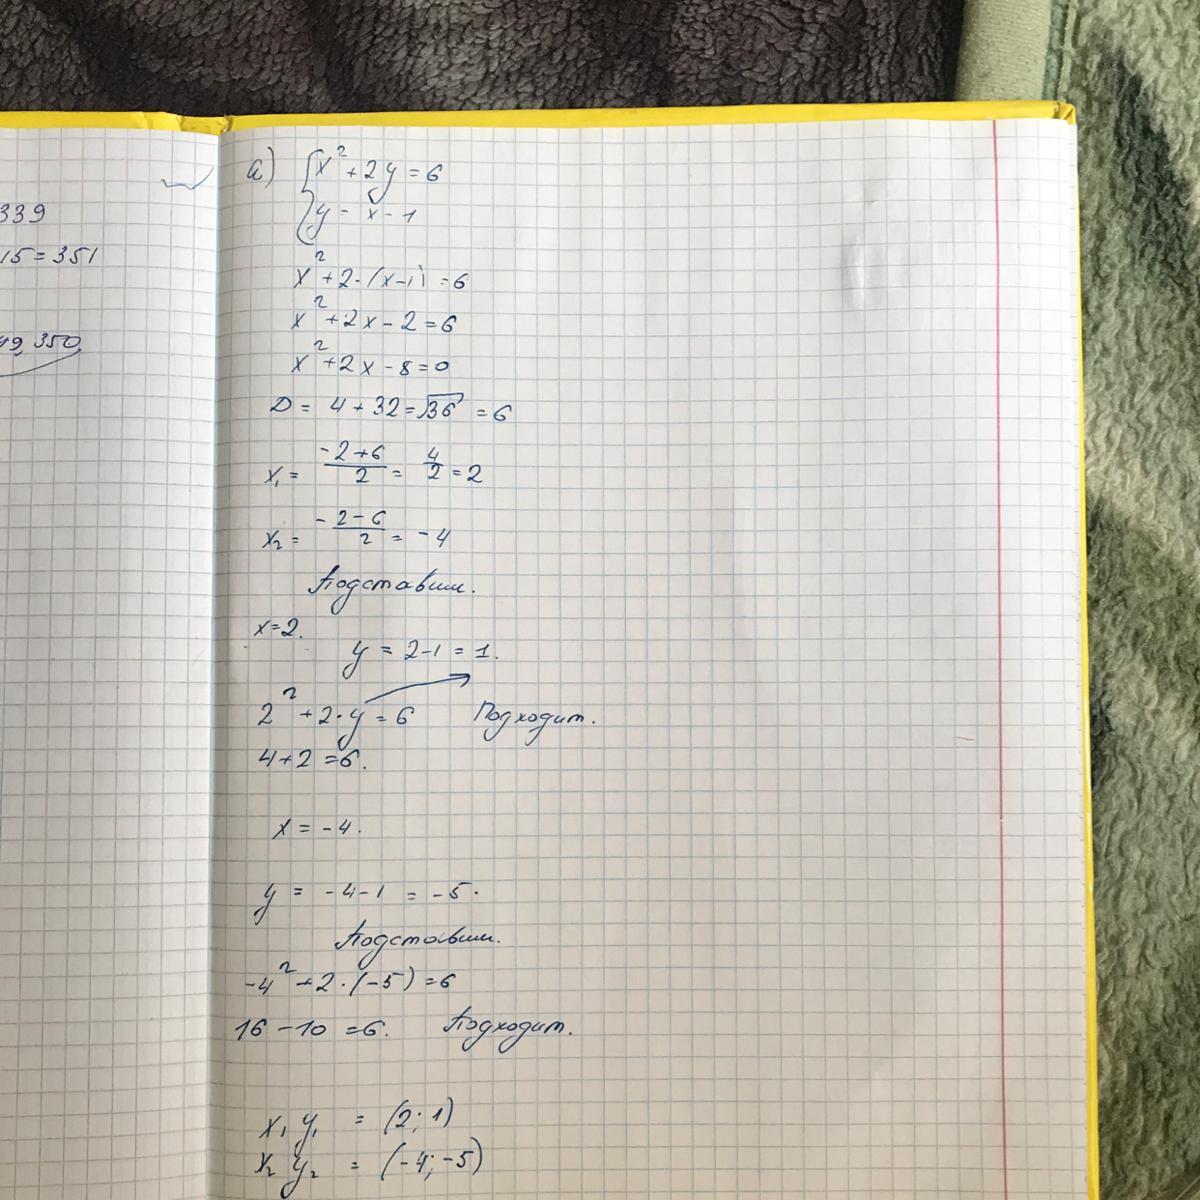 339
15 = 351
350
а) { x² + 2y = 6
y = x - 1
x² + 2 · (x - 1) = 6
x² + 2x - 2 = 6
x² + 2x - 8 = 0
D = 4 + 32 = √36 = 6
x₁ = (-2+6)/2 = 4/2 = 2
x₂ = (-2-6)/2 = -4
Подставим.
x = 2.
y = 2-1 = 1.
2² + 2 · y = 6 Подходит.
4 + 2 = 6.
x = -4.
y = -4-1 = -5.
Подставим.
-4² + 2 · (-5) = 6
16 - 10 = 6. Подходит.
x₁ y₁ = (2; 1)
x₂ y₂ = (-4; -5)